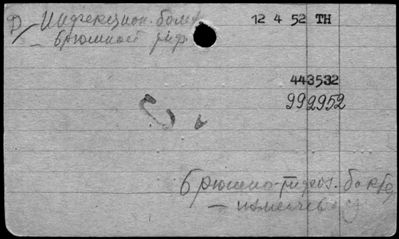 Д/ Инфекцион. болез
- брюшной тиф
12 4 52 TH
443532
992952
брюшно-тифоз. бактер